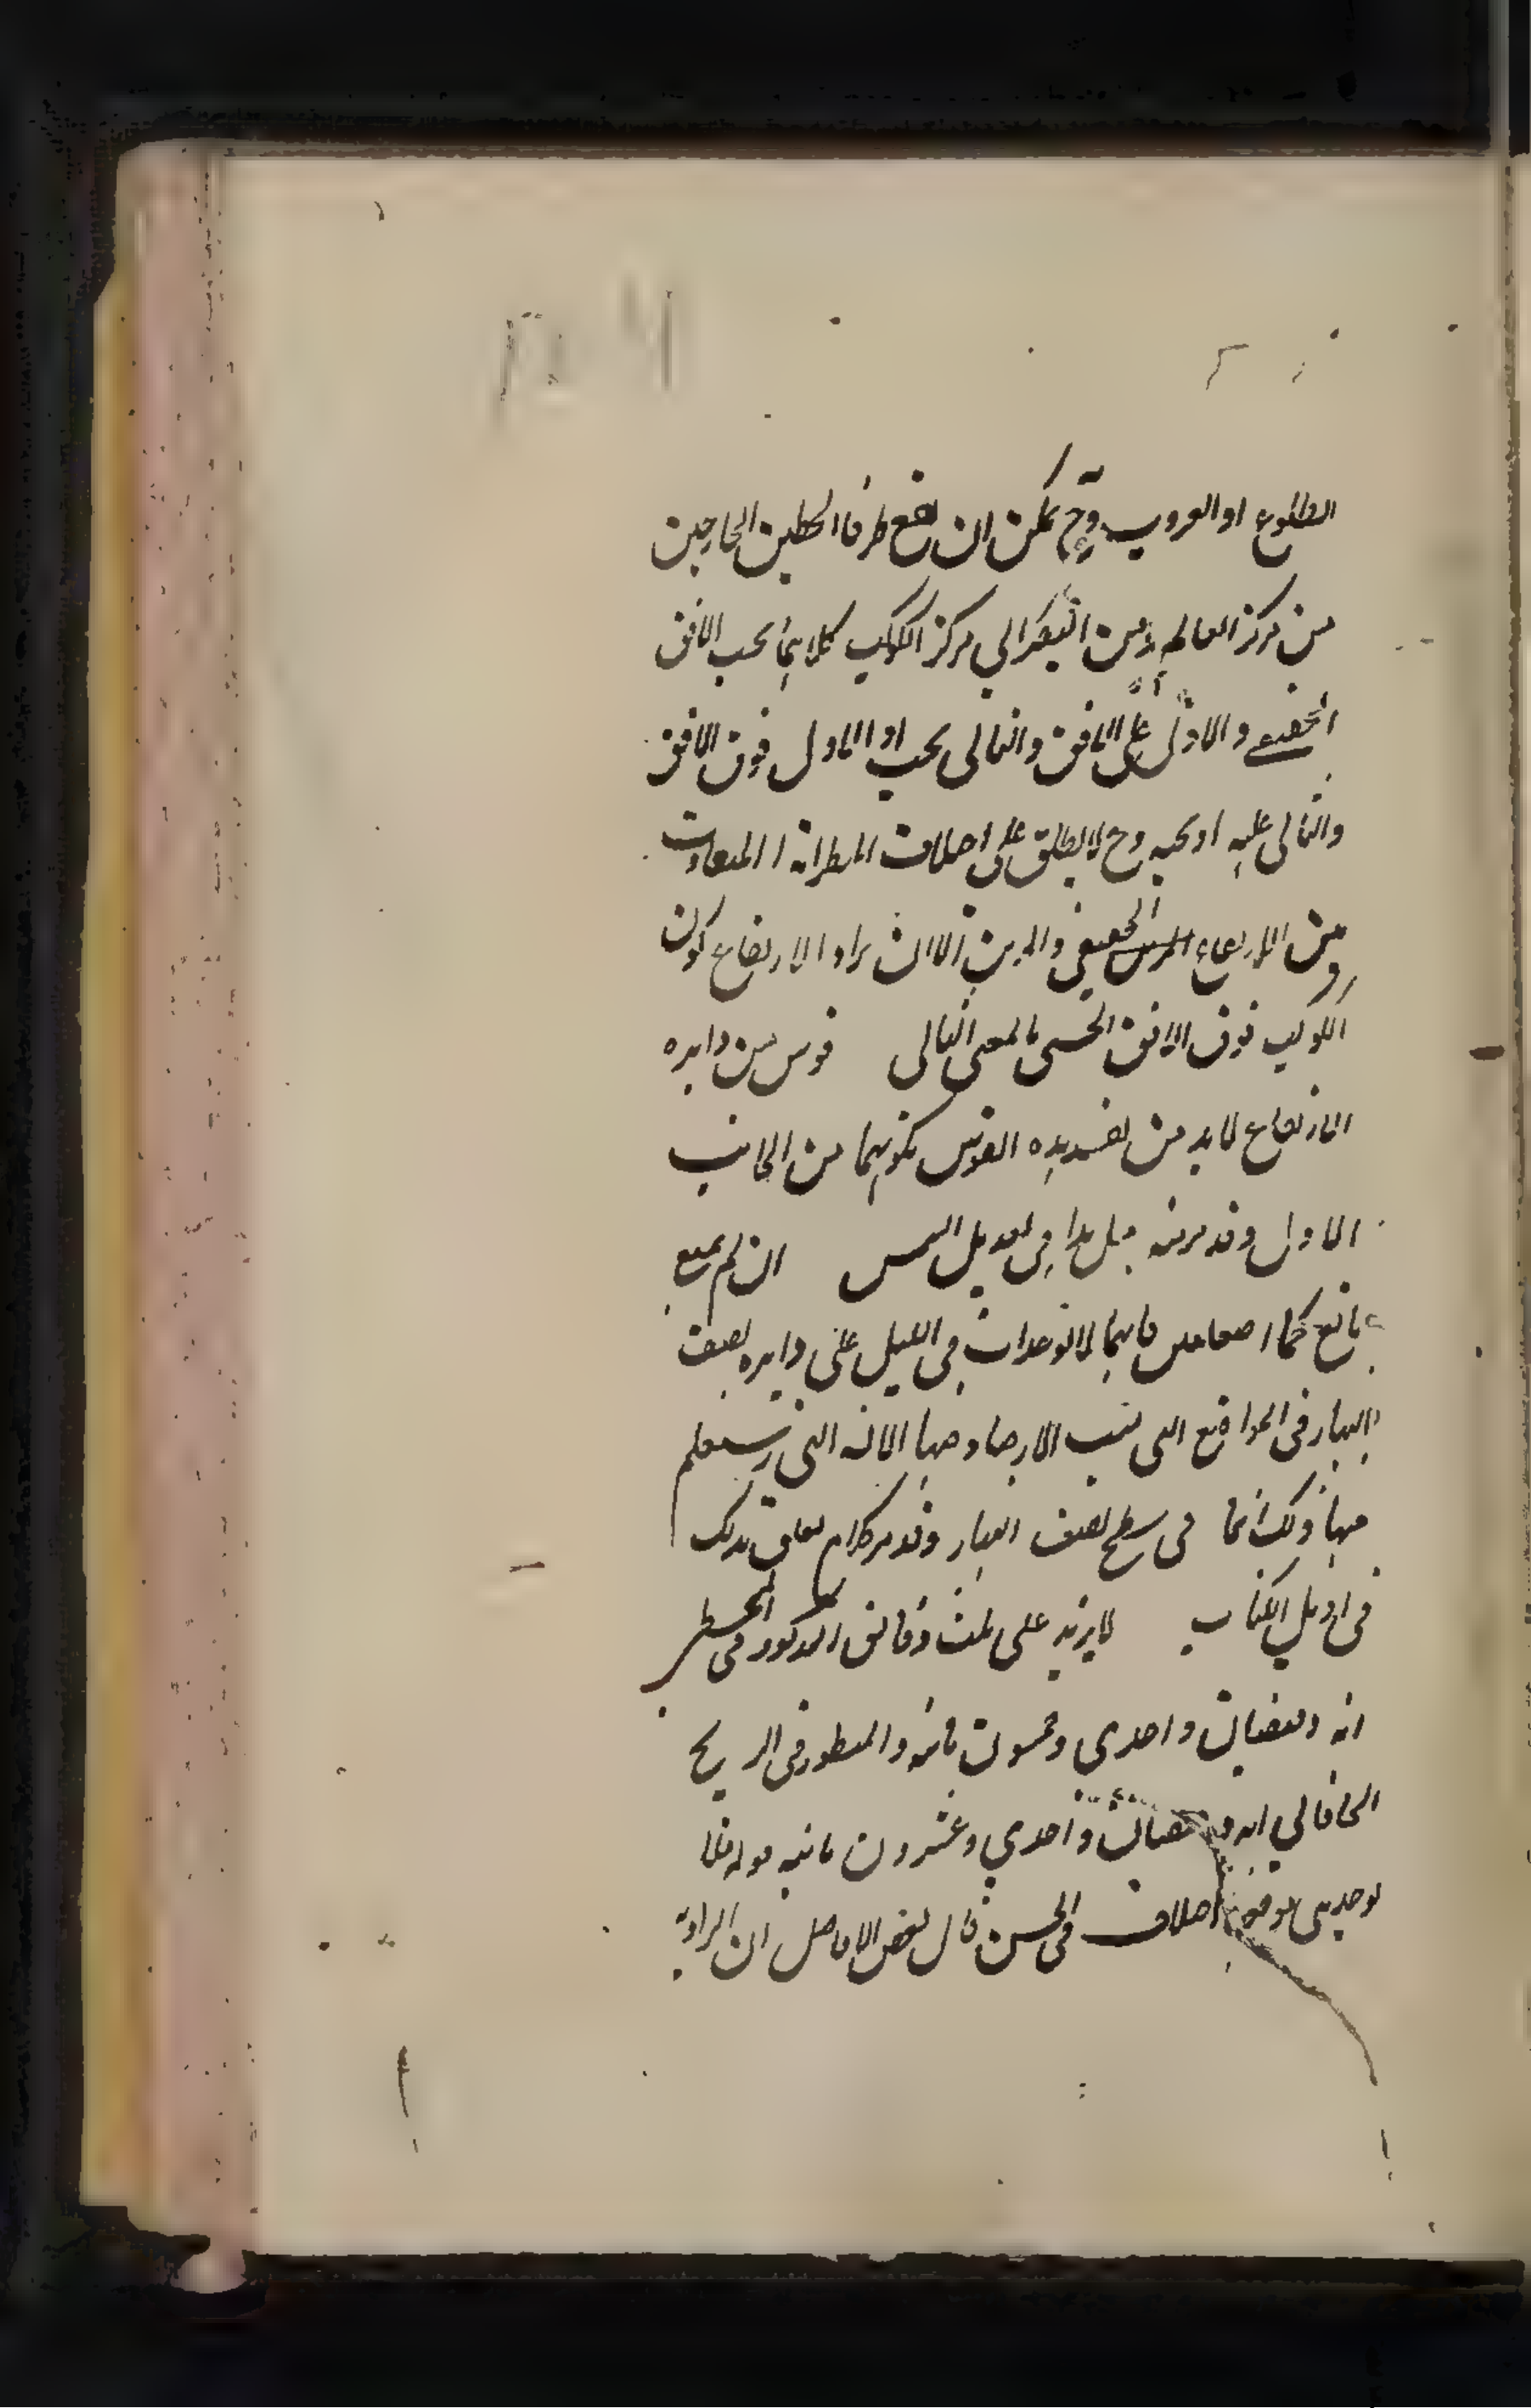 الطلوع او الغروب وح يمكن ان يقع طرفا الخطين الخارجين
من مركز العالم ومن البصر الى مركز الكوكب كلاهما تحت الافق
الحقيقي والاول على الافق والثاني تحت او الاول فوق الافق
والثاني عليه او تحته وح لا يطلق على اختلاف المنظر انه المتفاوت
من الارتفاع الحقيقي والمرئي الا ان يراد الارتفاع كون
الكوكب فوق الافق الحسي بالمعنى الثاني قوس من دايرة
الارتفاع لا بد من تقييد هذه القوس بكونهما من الجانب
الاول وقد مر مثل هذا في تعديل الشمس ان لم يمنع
مانع كما فانهما لا توجدان في الليل على دايرة نصف
النهار في المواضع التي الارصاد فيها الالة التي يستعلم
منها ذلك انما في سطح نصف النهار وقد مر كلام تعلق بذلك
في اوايل الكتاب لا يزيد على ثلث دقائق المذكور في المجسطي
انه دقيقتان واحدى وخمسون ثانية والمسطور في الزيج
الخاقاني انه دقيقتان واحدي وعشرون ثانية قوله فلا
يوجد اختلاف في الحسن قال بعض الافاضل ان الزاوية